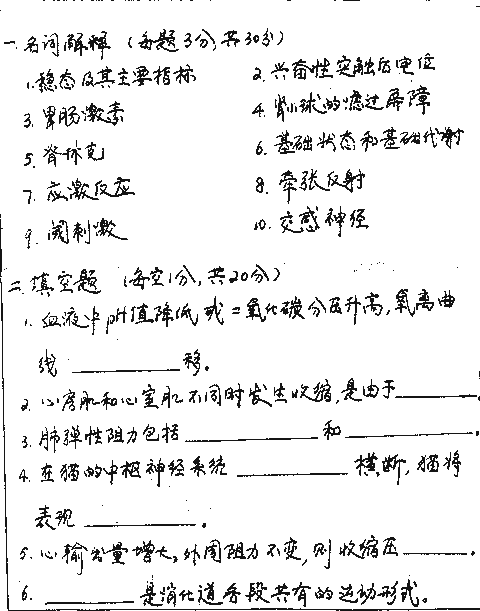 一.名词解释 (每题3分,共30分)
1.稳态及其主要指标 2.兴奋性突触后电位
3.胃肠激素 4.肾小球的滤过屏障
5.脊休克 6.基础状态和基础代谢
7.应激反应 8.牵张反射
9.阈刺激 10.交感神经
二.填空题 (每空1分,共20分)
1.血液中pH值降低或二氧化碳分压升高,氧离曲
线 ________ 移。
2.心房肌和心室肌不同时发生收缩,是由于________.
3.肺弹性阻力包括 ________ 和 ________.
4.在猫的中枢神经系统 ________ 横断,猫将
表现 ________.
5.心输出量增大,外周阻力不变,则收缩压________.
6. ________ 是消化道各段共有的运动形式。